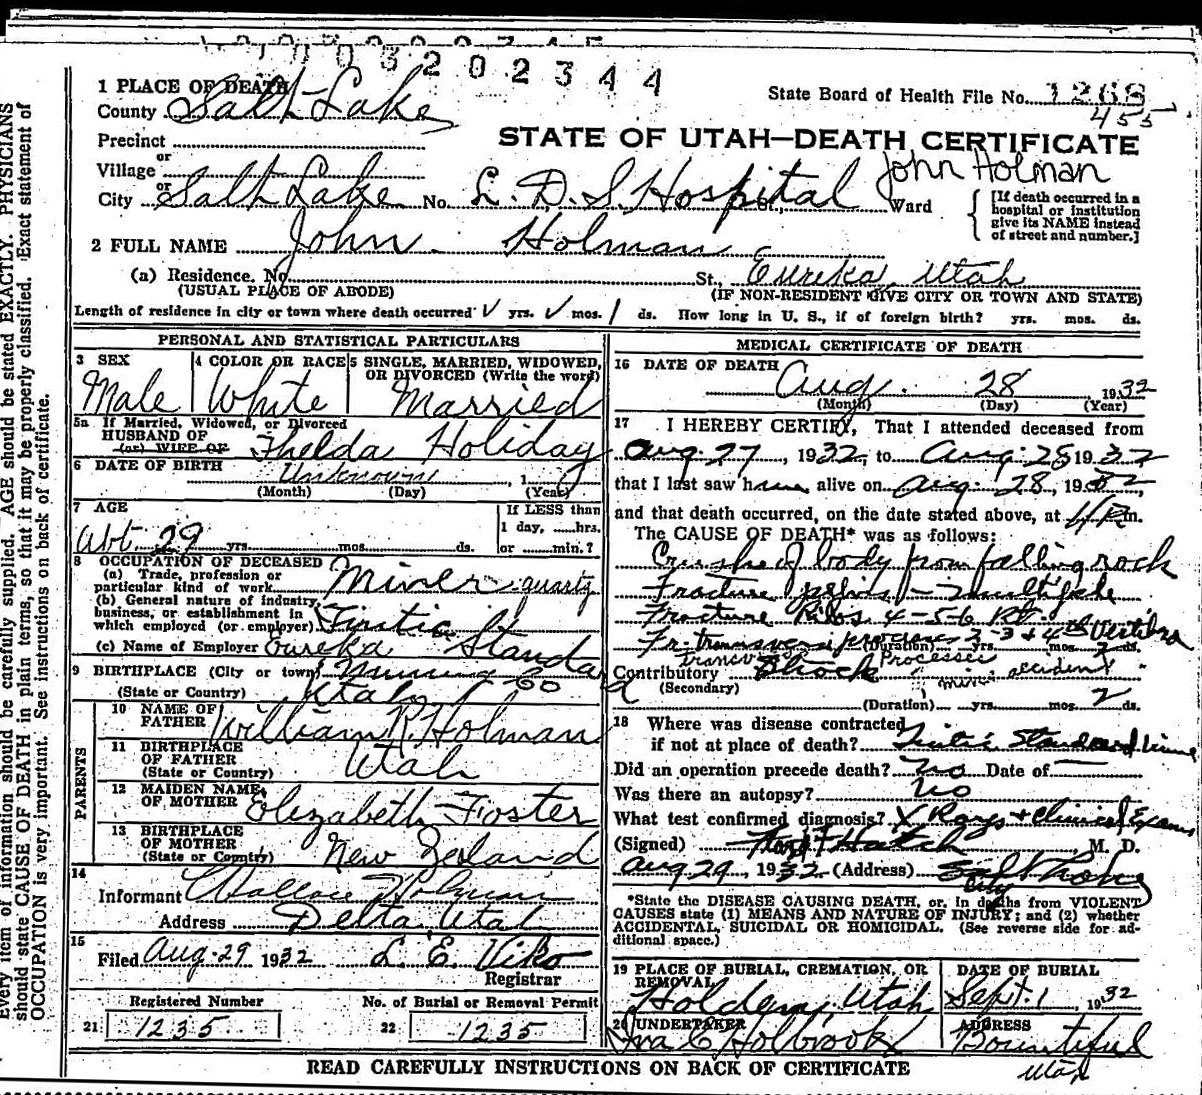 1003202344
1 PLACE OF DEATH
County Salt Lake
State Board of Health File No. 1268
455
Precinct
STATE OF UTAH—DEATH CERTIFICATE
or
Village
John Holman
or
City Salt Lake No. L. D. S. Hospital St., Ward
[If death occurred in a hospital or institution give its NAME instead of street and number.]
2 FULL NAME John Holman
(a) Residence. No. St., Eureka, Utah
(USUAL PLACE OF ABODE) (IF NON-RESIDENT GIVE CITY OR TOWN AND STATE)
Length of residence in city or town where death occurred yrs. mos. 1 ds. How long in U. S., if of foreign birth? yrs. mos. ds.
PERSONAL AND STATISTICAL PARTICULARS
3 SEX 4 COLOR OR RACE 5 SINGLE, MARRIED, WIDOWED, OR DIVORCED (Write the word)
Male White Married
5a If Married, Widowed, or Divorced
HUSBAND OF
(or) WIFE OF Thelda Holiday
6 DATE OF BIRTH Unknown, 1
(Month) (Day) (Year)
7 AGE If LESS than
1 day, ......hrs.
abt 29 yrs. mos. ds. or ........min.?
8 OCCUPATION OF DECEASED
(a) Trade, profession or
particular kind of work Miner quartz
(b) General nature of industry,
business, or establishment in
which employed (or employer) Tintic Standa
(c) Name of Employer Eureka
9 BIRTHPLACE (City or town) Mining Co
(State or Country) Utah
PARENTS
10 NAME OF
FATHER William R. Holman
11 BIRTHPLACE
OF FATHER
(State or Country) Utah
12 MAIDEN NAME
OF MOTHER Elizabeth Foster
13 BIRTHPLACE
OF MOTHER
(State or Country) New Zeland
14
Informant Wallace Holman
Address Delta, Utah
15
Filed Aug. 29 1932 L. E. Viko
Registrar
Registered Number No. of Burial or Removal Permit
21 1235 22 1235
MEDICAL CERTIFICATE OF DEATH
16 DATE OF DEATH
Aug. 28 1932
(Month) (Day) (Year)
17 I HEREBY CERTIFY, That I attended deceased from
Aug. 27, 1932, to Aug. 28 1932
that I last saw him alive on Aug. 28, 1932,
and that death occurred, on the date stated above, at m.
The CAUSE OF DEATH* was as follows:
Crushed body from falling rock
Fracture pelvis - multiple
Fracture Ribs 4-5-6 Rt.
Fr. transverse processes 2-3 + 4th Vertibra
(Duration) yrs. mos. 2 ds.
transverse Processes
Contributory Shock mine accident
(Secondary)
(Duration) yrs. mos. 2 ds.
18 Where was disease contracted
if not at place of death? Tintic Standard Mine
Did an operation precede death? No Date of
Was there an autopsy? No
What test confirmed diagnosis? X Rays + clinical Exam
(Signed) Hatch, M. D.
Aug 29, 1932 (Address) Salt Lake
City
*State the DISEASE CAUSING DEATH, or, in deaths from VIOLENT
CAUSES state (1) MEANS AND NATURE OF INJURY; and (2) whether
ACCIDENTAL, SUICIDAL OR HOMICIDAL. (See reverse side for additional space.)
19 PLACE OF BURIAL, CREMATION, OR REMOVAL DATE OF BURIAL
Holden, Utah Sept. 1, 1932
20 UNDERTAKER ADDRESS
Ira C Holbrook Bountiful
Utah
READ CAREFULLY INSTRUCTIONS ON BACK OF CERTIFICATE
Every item of information should be carefully supplied. AGE should be stated EXACTLY. PHYSICIANS
should state CAUSE OF DEATH in plain terms, so that it may be properly classified. Exact statement of
OCCUPATION is very important. See instructions on back of certificate.